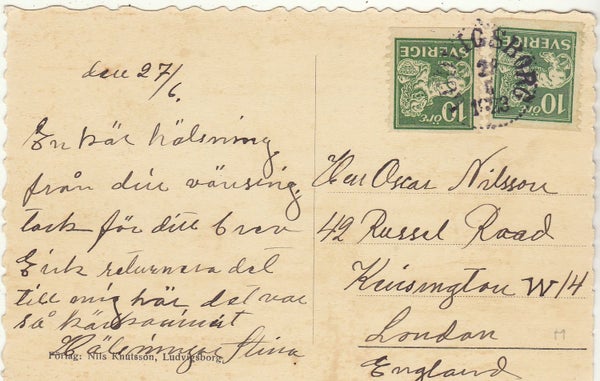 den 27/6.
En kär hälsning
från din väninna,
tack för ditt brev
Erik returnera det
till mig här det var
så kärkommit
Hälsningar Stina
Förlag: Nils Knutsson, Ludvigsborg.
SVERIGE
10 ÖRE
SVERIGE
10 ÖRE
LUDVIGSBORG
Herr Oscar Nilsson
42 Russel Road
Kensington W14
London
England